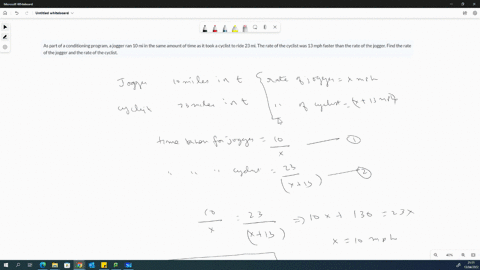 Microsoft Whiteboard
Untitled whiteboard
As part of a conditioning program, a jogger ran 10 mi in the same amount of time as it took a cyclist to ride 23 mi. The rate of the cyclist was 13 mph faster than the rate of the jogger. Find the
rate of the jogger and the rate of the cyclist.
Jogger 10 miles in t rate of jogger = x mph
cyclist 23 miles in t " of cyclist = (x + 13 mph)
time taken for jogger = 10/x ①
" " " cyclist = 23/(x+13) ②
10/x = 23/(x+13) ⇒ 10x + 130 = 23x
x = 10 mph
40%